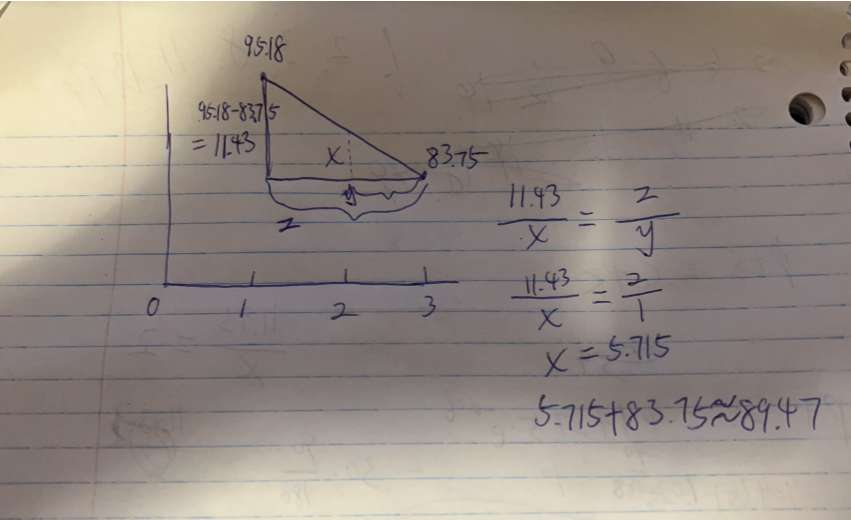 95.18
95.18-83.75
= 11.43
x
83.75
y
2
0 1 2 3
11.43/x = 2/y
11.43/x = 2/1
x = 5.715
5.715+83.75≈89.47